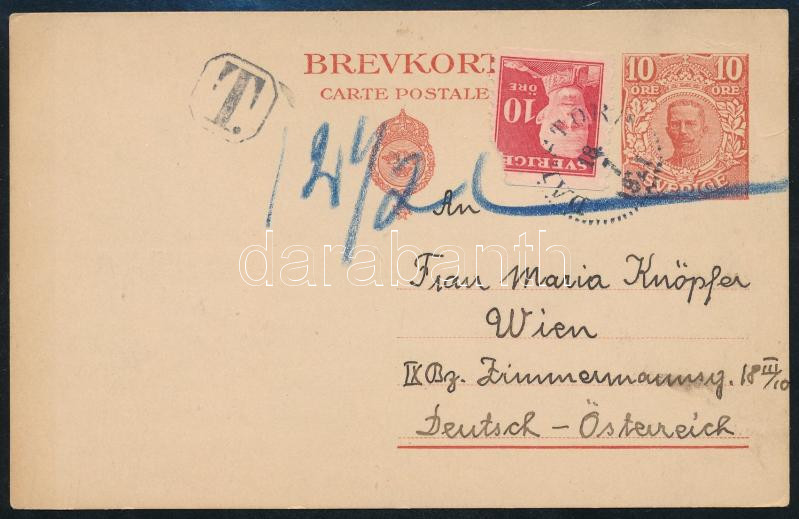 BREVKORT
CARTE POSTALE
T.
10 10
ÖRE ÖRE
SVERIGE
10
ÖRE
SVERIGE
An
Frau Maria Knöpfer
Wien
IX Bz. Zimmermanng. 18 III/10
Deutsch-Österreich
darabanth